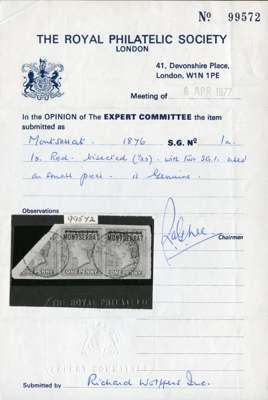 Nº 99572
THE ROYAL PHILATELIC SOCIETY
LONDON
41, Devonshire Place,
London, W1N 1PE
Meeting of 6 APR 1977
In the OPINION OF The EXPERT COMMITTEE the item
submitted as
Montserrat 1876 S.G. Nº 1a
1d. Red - bisected - with two S.G.1. used
on small piece - is Genuine.
Observations
99572
MONTSERRAT MONTSERRAT
PENNY ONE PENNY ONE PENNY
Chairman
THE ROYAL PHILATELIC
EXPERT COMMITTEE
Submitted by Richard Wolffers Inc.